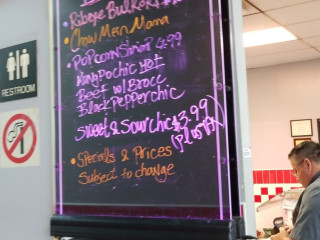 Ribeye Bulkogi
Chow Mein Mama
Popcorn Shrimp 4.99
Wang pochic Hot
Beef w/ Brocc
Black Pepper chic
Sweet & Sour chic $3.99
(Plus TAX)
Specials & Prices
Subject to change
RESTROOM